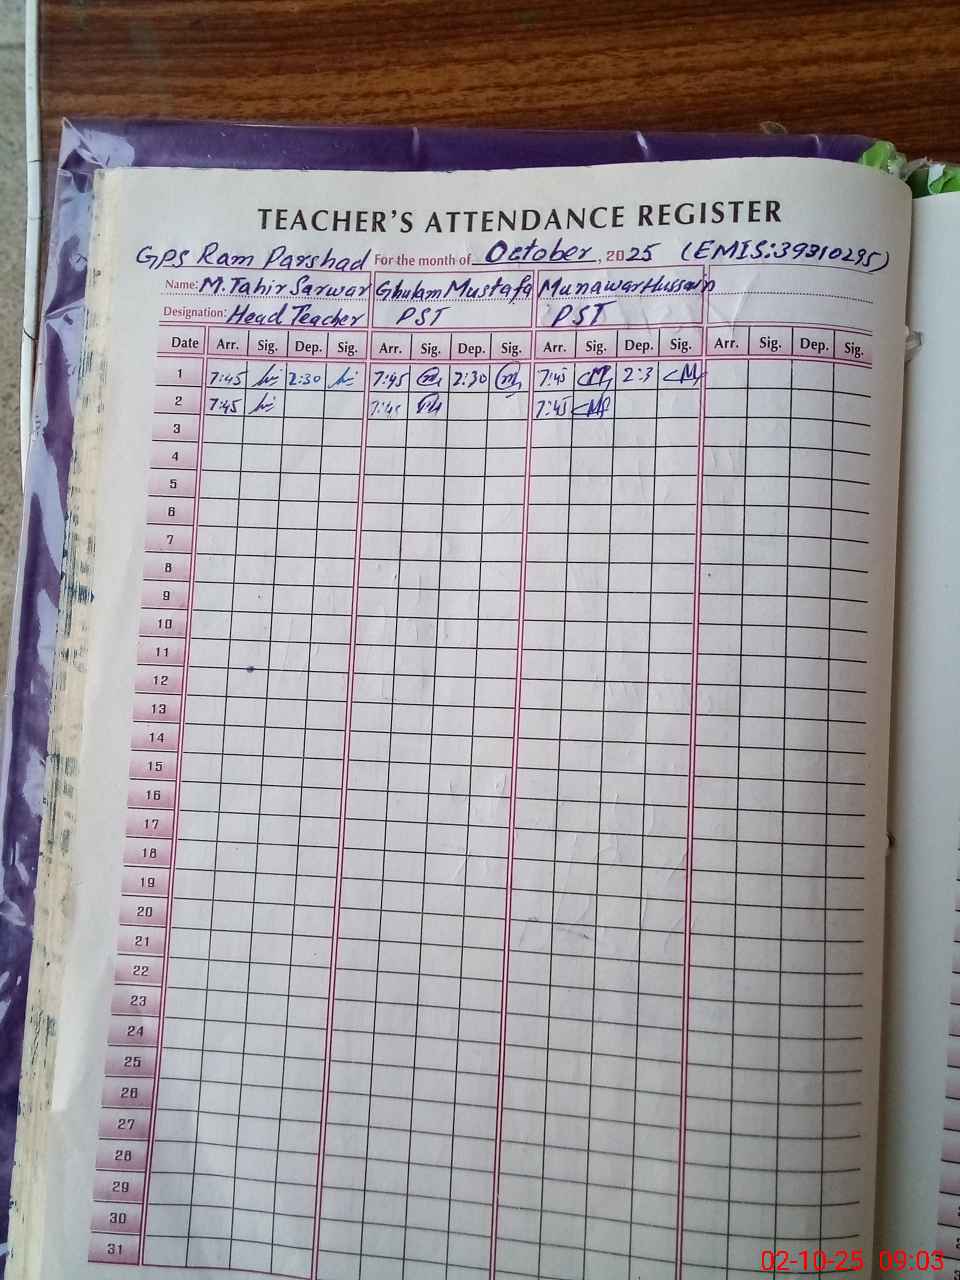 TEACHER'S ATTENDANCE REGISTER
GPS Ram Parshad For the month of October, 2025 (EMIS:39310295)
Name: M.Tahir Sarwar Ghulam Mustafa Munawar Hussain
Designation: Head Teacher PST PST
Date Arr. Sig. Dep. Sig. Arr. Sig. Dep. Sig. Arr. Sig. Dep. Sig. Arr. Sig. Dep. Sig.
1 7:45 2:30 7:45 2:30 7:45 2:3
2 7:45 7:45 7:45
3
4
5
6
7
8
9
10
11
12
13
14
15
16
17
18
19
20
21
22
23
24
25
26
27
28
29
30
31
02-10-25 09:03